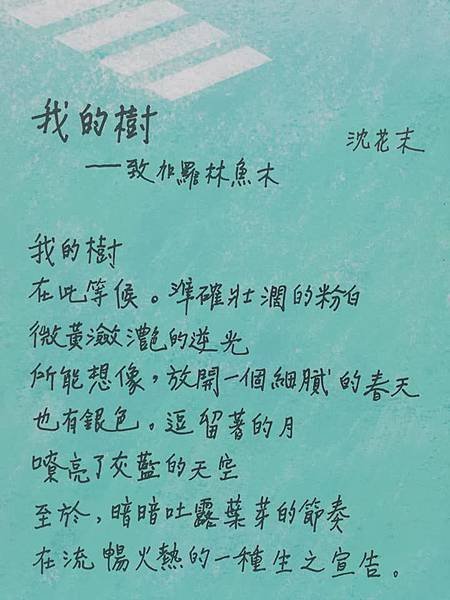 我的樹
沈花末
——致加羅林魚木
我的樹
在此等候。準確壯濶的粉白
微黃瀲灩的逆光
所能想像，放開一個細膩的春天
也有銀色。逗留著的月
嘹亮了灰藍的天空
至於，暗暗吐露葉芽的節奏
在流暢火熱的一種生之宣告。